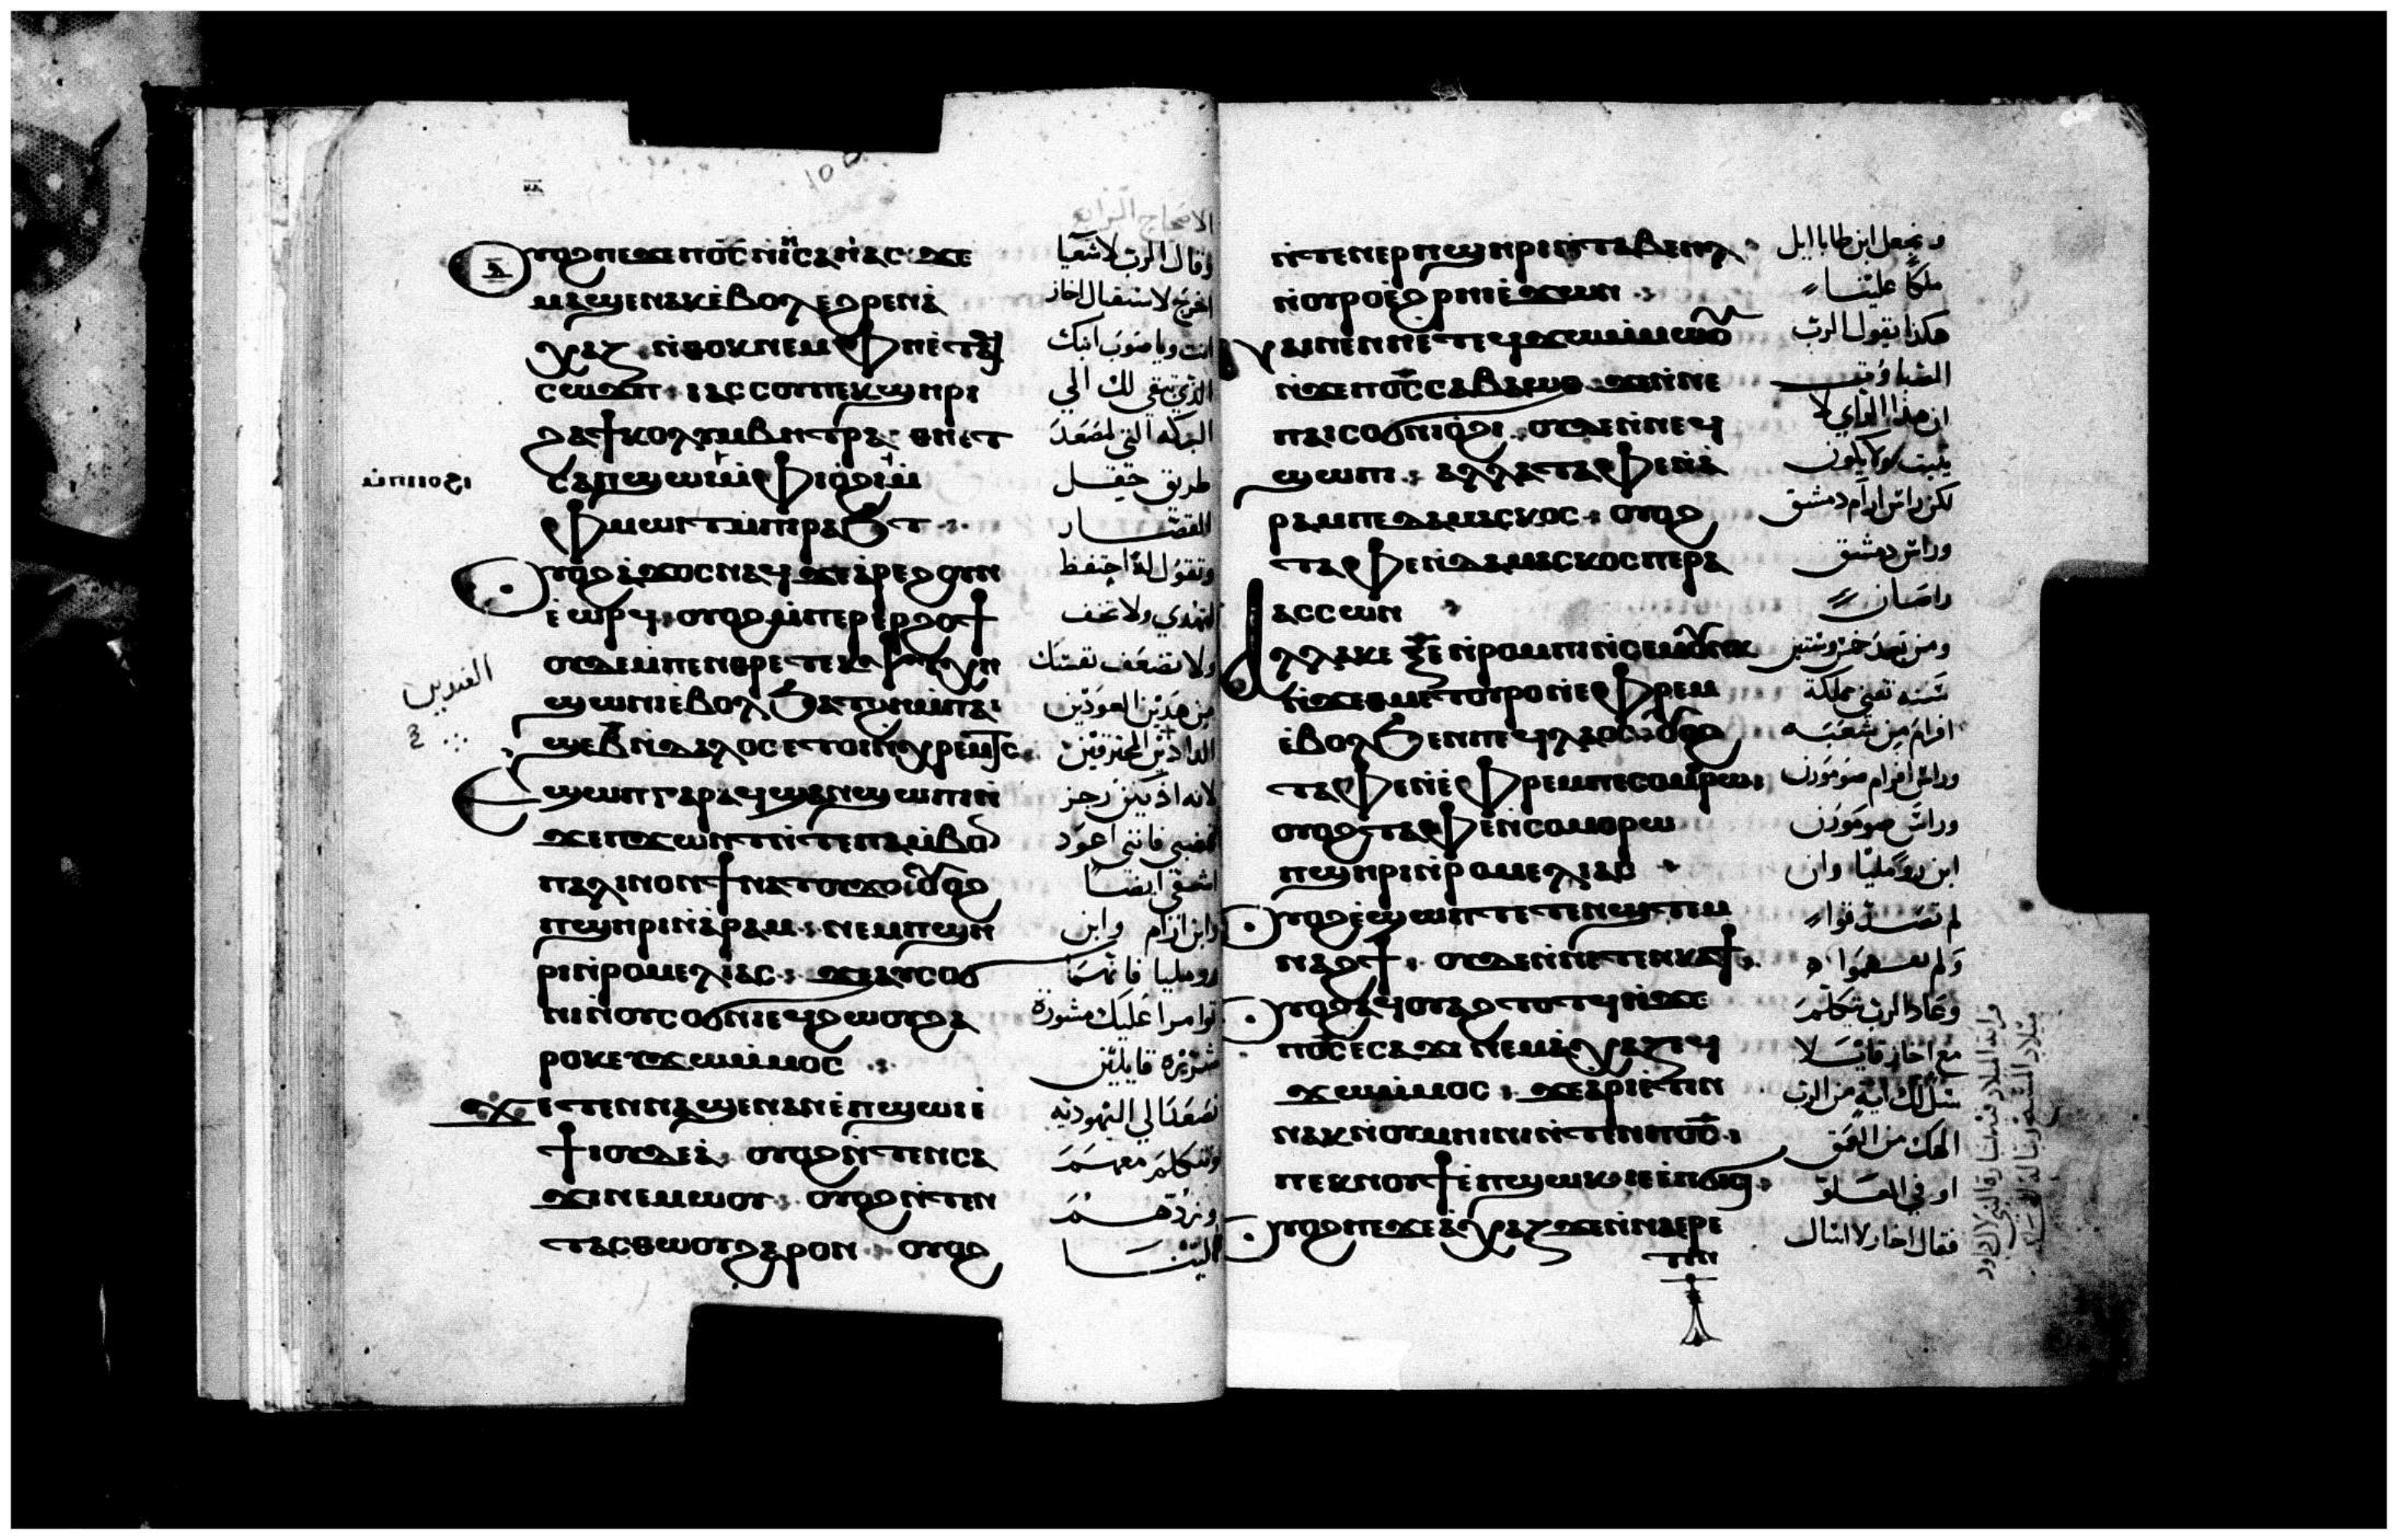 ⲟⲩⲟϩ ⲡⲉϫⲉ ⲡⲟ̅ⲥ̅ ⲛⲏⲥⲁⲏⲁⲥ ϫⲉ
ⲙⲁϣⲉⲛⲁⲕ ⲉ̀ⲃⲟⲗ ⲉ̀ϩⲣⲉⲛ ⲁ̀
ⲭⲁⲍ ⲛ̀ⲑⲟⲕ ⲛⲉⲙ ⲫⲏⲉⲧⲁϥ
ⲥⲱϫⲡ ⲓⲁⲥⲥⲟⲩⲡ ⲡⲉⲕϣⲏⲣⲓ
ϩⲁ ϯⲕⲟⲗⲩⲙⲃⲏⲑⲣⲁ ⲑⲏⲉⲧ
ⲥⲁⲡϣⲱⲓ ⲙ̀ⲫⲓⲟϩⲓ ⲙ̀
ⲫⲙⲱⲓⲧ ⲙ̀ⲡⲣⲁϧⲧ
ⲟⲩⲟϩ ⲁϫⲟⲥ ⲛⲁϥ ϫⲉ ⲁ̀ⲣⲉϩ ϩⲏⲡ
ⲉ̀ⲱⲣϥ ⲟⲩⲟϩ ⲙ̀ⲡⲉⲣⲉⲣϩⲟϯ
ⲟⲩⲇⲉ ⲙ̀ⲡⲉⲛⲑⲣⲉ ⲧⲉⲕⲯⲩⲭⲏ
ϣⲱⲛⲓ ⲉ̀ⲃⲟⲗ ϧⲁⲧϩⲏ ⲙ̀ⲡⲁⲓ
ϣⲉ ⲃ̅ ⲛ̀ⲇⲁⲗⲟⲥ ⲉⲧⲟⲓ ⲛ̀ⲭⲣⲉⲙⲧⲥ
ⲉϣⲱⲡ ⲅⲁⲣ ⲁϥϣⲁⲛϣⲱⲡⲓ ⲛ̀
ϫⲉ ⲡϫⲱⲛⲧ ⲛ̀ⲧⲉ ⲡⲁⲙ̀ⲃⲟⲛ
ⲡⲁⲗⲓⲛ ⲟⲛ ϯⲛⲁⲧⲟⲩϫⲟ ⲟⲩⲟϩ
ⲡϣⲏⲣⲓ ⲛ̀ⲁ̀ⲣⲁⲙ ⲛⲉⲙ ⲡϣⲏ
ⲣⲓ ⲛ̀ⲣⲟⲙⲉⲗⲓⲁⲥ ϫⲉ ⲁⲩⲥⲟϭ
ⲛⲓ ⲛ̀ⲟⲩⲥⲟϭⲛⲓ ⲉϥϩⲱⲟⲩ ϩⲁ
ⲣⲟⲕ ⲉⲩϫⲱ ⲙ̀ⲙⲟⲥ
ϫⲉ ⲧⲉⲛⲛⲁϣⲉⲛⲁⲛ ⲉ̀ⲡϣⲱⲓ ⲉ̀
ϯⲓⲟⲩⲇⲉⲁ ⲟⲩⲟϩ ⲛ̀ⲧⲉⲛⲥⲁ
ϫⲓ ⲛⲉⲙⲱⲟⲩ ⲟⲩⲟϩ ⲛ̀ⲧⲉⲛ
ⲧⲁⲥⲑⲱⲟⲩ ϩⲁⲣⲟⲛ ⲟⲩⲟϩ
وقال الرب لاشعيا
اخرج لاستقبال اخاز
انت وياصوب ابنك
الذي تبقى لك الي
البركه التي لمصعد
طريق حقل
القصار
وتقول له احتفظ
لتهدي ولا تخف
ولا تضعف نفسك
من هدين العودين
لانه اذ يكن رجز
غضبي فانني اعود
اشفي ايضا
وابن ارام وابن
روميليا فانهما
توامرا عليك مشورة
شريره قايلين
نصعد الي اليهوديه
ونتكلم معهم
ونردهم
الينا
ⲛ̀ⲧⲉⲛⲉⲣ ⲡϣⲏⲣⲓ ⲛ̀ⲧⲁⲃⲉⲏⲗ
ⲛ̀ⲟⲩⲣⲟ ⲉ̀ϩⲣⲏⲓ ⲉ̀ϫⲱⲛ
ⲛⲁⲓ ⲛⲉ ⲛⲏⲉⲧⲉϥϫⲱ ⲙ̀ⲙⲱⲟⲩ
ⲛ̀ϫⲉ ⲡⲟ̅ⲥ̅ ⲥⲁⲃⲁⲱⲑ ϫⲉ ⲛ̀ⲛⲉ
ⲡⲁⲓⲥⲟϭⲛⲓ ⲟ̀ϩⲓ ⲟⲩⲇⲉ ⲛ̀ⲛⲉϥ
ϣⲱⲡⲓ ⲁⲗⲗⲁ ⲧⲁⲫⲉ ⲛ̀ⲁ̀
ⲣⲁⲙ ⲡⲉ ⲇⲁⲙⲁⲥⲕⲟⲥ ⲟⲩⲟϩ
ⲧⲁⲫⲉ ⲛ̀ⲇⲁⲙⲁⲥⲕⲟⲥ ⲡⲉ ⲣⲁ
ⲁⲥⲥⲱⲛ
ⲁⲗⲗⲁ ⲕⲉ ⲝ̅ⲉ̅ ⲛ̀ⲣⲟⲙⲡⲓ ⲛⲓⲥⲉⲙⲟⲩⲛⲕ
ⲛ̀ϫⲉ ⲑⲙⲉⲧⲟⲩⲣⲟ ⲛ̀ⲉ̀ⲫⲣⲉⲙ
ⲉ̀ⲃⲟⲗ ϧⲉⲛ ⲡⲉϥⲗⲁⲟⲥ ⲟⲩⲟϩ
ⲧⲁⲫⲉ ⲛ̀ⲉ̀ⲫⲣⲉⲙ ⲡⲉ ⲥⲟⲙⲟⲣⲱⲛ
ⲟⲩⲟϩ ⲧⲁⲫⲉ ⲛ̀ⲥⲟⲙⲟⲣⲱ
ⲡϣⲏⲣⲓ ⲛ̀ⲣⲟⲙⲉⲗⲓⲁⲥ
ⲟⲩⲟϩ ⲉ̀ϣⲱⲡ ⲧⲉⲧⲉⲛϣⲧⲉⲙ
ⲛⲁϩϯ ⲟⲩⲇⲉ ⲛ̀ⲛⲉⲧⲉⲛⲕⲁϯ
ⲟⲩⲟϩ ⲁϥⲟⲩⲁϩⲧⲟⲧϥ ⲛ̀ϫⲉ
ⲡⲟ̅ⲥ̅ ⲉ̀ⲥⲁϫⲓ ⲛⲉⲙ ⲁ̀ⲭⲁⲍ ⲉϥ
ϫⲱ ⲙ̀ⲙⲟⲥ ϫⲉ ⲁ̀ⲣⲓⲉ̀ⲧⲓⲛ
ⲛⲁⲕ ⲛ̀ⲟⲩⲙⲏⲓⲛⲓ ⲛ̀ⲧⲉⲛ ⲡⲟ̅ⲥ̅
ⲡⲉⲕⲛⲟⲩϯ ⲉ̀ⲡϣⲱⲕ ⲓⲉ ⲉ̀ⲡϭⲓⲥⲓ
ⲟⲩⲟϩ ⲡⲉϫⲉ ⲁ̀ⲭⲁⲍ ϫⲉ ⲛ̀ⲛⲁⲉⲣⲉ
ⲧⲓⲛ
ونجعل ابن طابا ايل
ملكا علينا
هكذا يقول الرب
الصباؤوت
ان هذا الراي لا
يثبت ولا يكون
لكن راس ارام دمشق
وراس دمشق
راصان
سنه تفنى مملكة
افرام من شعبه
وراس افرام صومورن
وراس صومورن
ابن روميليا وان
لم تصدقوا
ولم تفهموا
وعاد الرب يتكلم
مع اخاز قايلا
سل لك ايه من الرب
الهك من العمق
او في العلو
فقال اخاز لا اسال